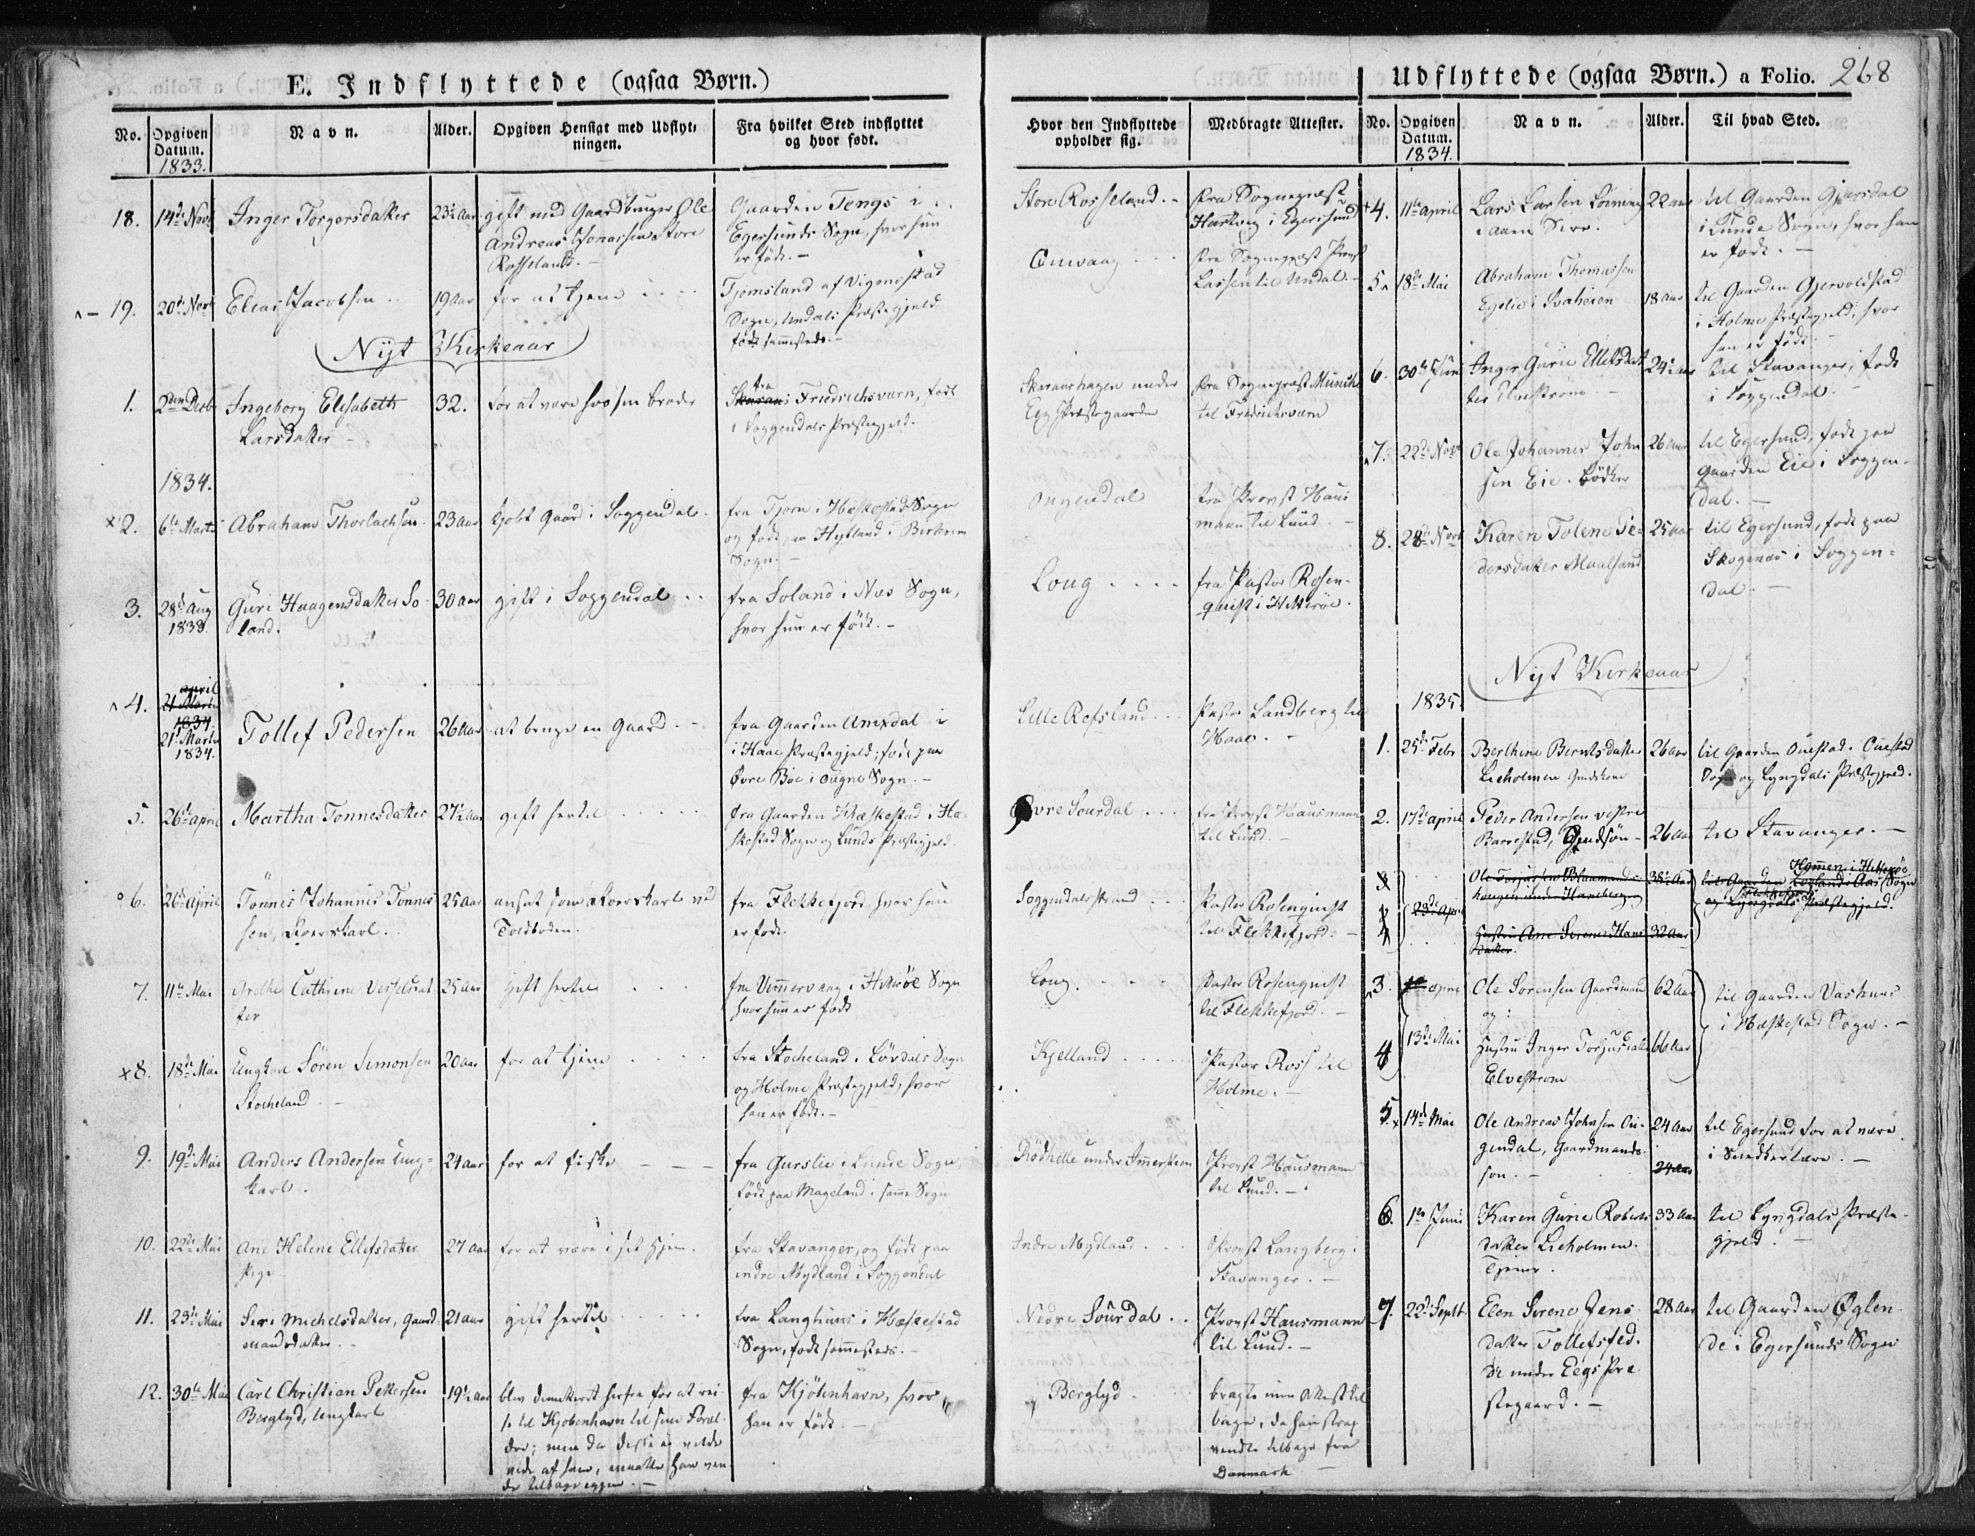 E. Indflyttede (ogsaa Børn.)
No.
Opgiven Datum.
1833.
Navn.
Alder.
Opgiven Hensigt med Udflyt-
ningen.
Fra hvilket Sted indflyttet
og hvor født.
Hvor den Indflyttede
opholder sig.
Medbragte Attester.
18. 14de Novb Inger Torgersdatter 23½ Aar gift med Gaardbruger Ole
Andreas Jonassen Store
Rosseland. -
Gaarden Tengs i
Egersunds Sogn, hvor hun
er født. -
Store Rosseland. -
fra Sogneprest
Hartwig i Egersund
19. 20de Novb Elias Jacobsen 19 Aar for at tjene
Tjomsland af Vigmostad
Sogn, Undals Præstegjeld
født sammesteds. -
fra Sogneprest
Lassen til Undal. -
Nyt Kirkeaar
1. 2den Decb Ingeborg Elisabeth
Larsdatter -
32. for at være hos sin broder
fra
i Fredrichsværn, født
i Soggendals Præstegjeld.
under
Eeg Præstegaarden
fra Sogneprest Munich
til Fredrichsværn
1834.
2. 6te Marts Abraham Thorlachsen 23 Aar kjøbt Gaard i Soggendal.
fra Tjorn i Hæskestad Sogn
og født paa Hytland i Birkrem
Sogn -
Ougendal
fra Provst Haus
mann til Lund. -
3. 28de Aug
1833.
Guri Haagensdatter So-
land.
30 Aar gift i Soggendal
fra Soland i Nes Sogn,
hvor hun er født. -
Loug
fra Pastor Rosen-
quist i Hitterøe.
4. april
21 Marts
1834
21de Marts
1834.
Tollef Pedersen 26 Aar at bruge en Gaard. -
fra Gaarden Anisdal i
i Haae Præstegjeld, født paa
Øvre Böe i Ougne Sogn. -
Lille Refsland
Pastor Landberg til
Haae. -
5. 26de April Martha Tonnesdatter 27½ Aar gift hertil
fra Gaarden Hæskestad i Hæ-
skestad Sogn og Lunds Præstegjeld.
Øvre Sourdal
fra Provst Hausmann
til Lund. -
6. 26de April Tönnes Johannes Tönnes
sen, Roerskarl.
25 Aar ansat som Roerskarl ved
Toldboden. -
fra Flekkefjord, hvor han
er født.
Soggendalsstrand
Pastor Rosenquist
til Flekkefjord. -
7. 11te Mai Grethe Cathrine
ter
25 Aar gift hertil
fra Ummervaag i Hitterøe Sogn
hvor hun er født
Loug.
Pastor Rosenquist
til Flekkefjord. -
8. 18de Mai Ungkarl Sören Simonsen
Stocheland
20 Aar for at tjene
fra Stocheland i Lövdals Sogn
og Holme Præstegjeld, hvor
han er født. -
Kjelland
Pastor Ross til
Holme. -
9. 19de Mai Anders Andersen Ung-
karl.
24 Aar for at fiske
fra Gurslie i Lunde Sogn,
født paa Mageland i samme Sogn
Rödhelle under Immersteen
Provst Hausmann
til Lund. -
10. 22de Mai Ane Helene Ellefsdatter
Pige
27 Aar for at være i sit Hjem.
fra Stavanger, og født paa
indre Mydland i Soggendal
Indre Mydland
Provst Langberg i
Stavanger. -
11. 23de Mai Siri Michelsdatter, Gaard
mandsdatter. -
21 Aar gift hertil
fra Langhuus i Hæskestad
Sogn, født sammesteds. -
Nedre Sourdal
Provst Hausmann
til Lund. -
12. 30te Mai Carl Christian Pettersen
Berglyd, Ungkarl
19½ Aar blev demitteret herfra for at rei-
se til Kjøbenhavn til sine Foræl-
dre; men da disse ei vilde
vide af ham, maatte han ven-
de tilbage igjen. -
fra Kjöbenhavn, hvor
han er født. -
Berglyd
bragte min Attest til
bage, da han strax
vendte tilbage fra
Danmark -
Udflyttede (ogsaa Børn.) a Folio. 268
No.
Opgiven Datum.
1834.
Navn.
Alder.
Til hvad Sted.
4. 11te april Lars Larsen Loining
i Aaen Sire.
22 Aar til Gaarden Gjersdal
i Lunde Sogn, hvor han
er født. -
5. 18de Mai Abraham Thomassen
Egelie i Svaheien
18 Aar til Gaarden Gjervoldstad
i Holme Præstegjeld, hvor
han er født.
6. 30te Juni Inger Gurie Ellefsdat
ter
24½ Aar til Stavanger, født
i Soggendal.
7. 22de Novb Ole Johannes John
sen Eie. Bödker
26 Aar til Egersund, født paa
Gaarden Eie i Soggen-
dal. -
8. 28de Novb Karen Tolene Pe-
dersdatter Maalsund
25 Aar til Egersund, født paa
Skogenæs i Soggen-
dal. -
Nyt Kirkeaar
1835.
1. 25de Febr Berthine Berntsdatter
Lieholmen
26 Aar til Gaarden Ouestad. Ouestad
Sogn og Lyngdals Præstegjeld.
2. 17de april Peder Andersen vestre
Barrestad, Gaardsøn
26 Aar til Stavanger. -
3
4
23de April
Ole
38½ Aar
Hustru Ane Serene Hans
datter.
32 Aar
til Gaarden
Sogn
og Lyngdals Præstegjeld.
3. april Ole Sörensen Gaardmand
og:
62 Aar
4 13de Mai Hustru Inger Torjusdatter
Elvestrøm
66 Aar
til Gaarden Vashuus
i Hæskestad Sogn. -
5. 14de Mai Ole Andreas Johnsen Ou-
gendal, Gaardmands-
søn. -
24 Aar
24 Aar
til Egersund for at være
i Snedkerlære. -
6. 1ste Juni Karen Gurie Roberts
datter Lieholmen.
Tjener.
33 Aar til Lyngdals Præste-
gjeld. -
7. 22de Septbr Elen Serene Jens
datter Tollefsted-
de under Eegs Præ
stegaard. -
28 Aar til Gaarden Øglen-
de i Egersunds Sogn